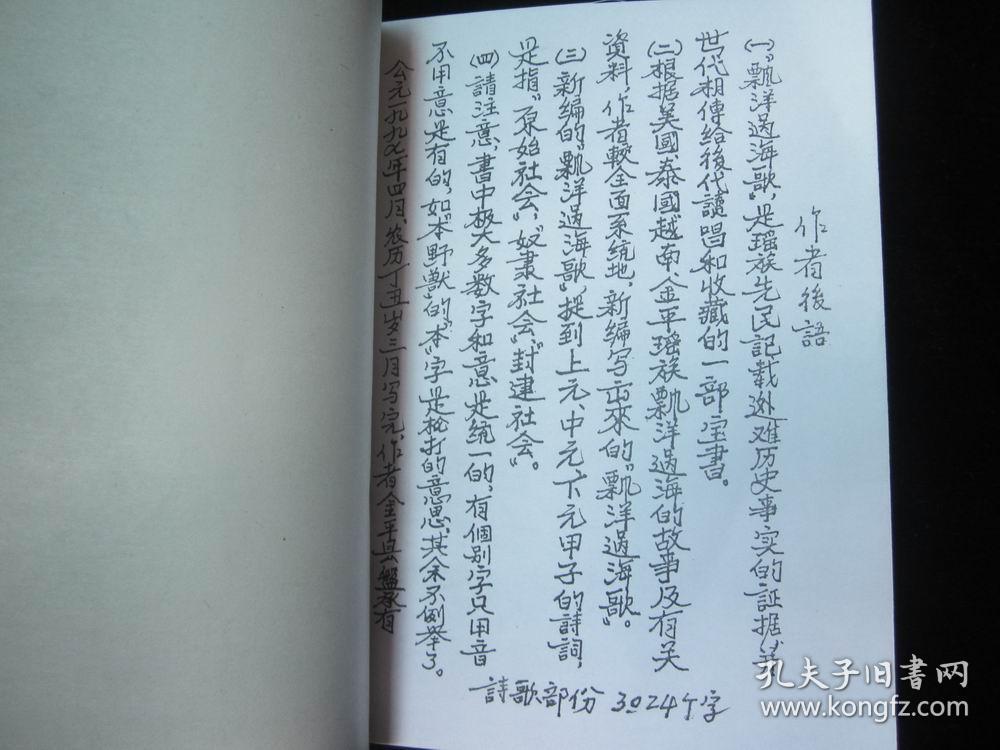 作者後語
㈠“飄洋過海歌”，是瑶族先民記载逃难历史事实的証据，并
世代相傳给後代讀唱和收藏的一部宝書。
㈡根据美國、泰國、越南、金平瑶族飄洋過海的故事及有关
资料，作者較全面系统地，新编写出來的“飄洋過海歌”。
㈢新编的“飄洋過海歌”，提到上元、中元、下元甲子的詩詞，
是指“原始社会”，“奴隶社会”，“封建社会”。
㈣請注意，書中极大多数字和意是统一的，有個别字只用音
不用意是有的，如“本野獸”的“本”字是枪打的意思，其余不例举了。
公元一九九七年四月，农历丁丑岁三月写完，作者金平县盤承有
詩歌部份 3024个字
孔夫子旧書网
www.kongfz.com